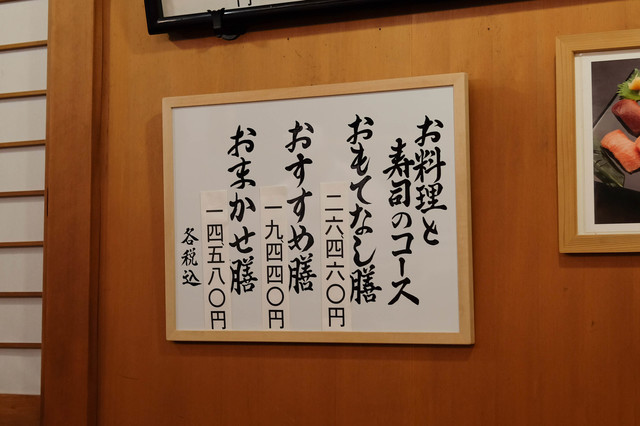 お料理と
寿司のコース
おもてなし膳
二六、四六〇円
おすすめ膳
一九、四四〇円
おまかせ膳
一四、五八〇円
各税込